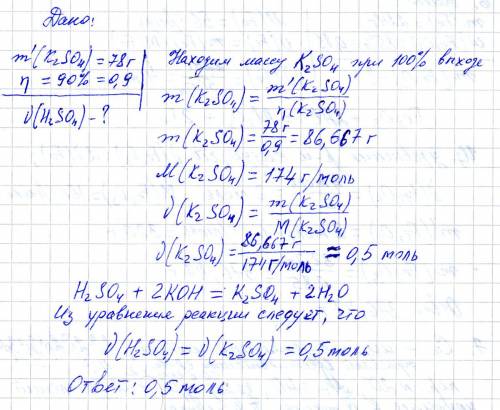 Дано:
m'(K₂SO₄) = 78 г
η = 90% = 0,9
ν(H₂SO₄) – ?
Находим массу K₂SO₄ при 100% выходе
m(K₂SO₄) = m'(K₂SO₄) / η(K₂SO₄)
m(K₂SO₄) = 78 г / 0,9 = 86,667 г
M(K₂SO₄) = 174 г/моль
ν(K₂SO₄) = m(K₂SO₄) / M(K₂SO₄)
ν(K₂SO₄) = 86,667 г / 174 г/моль = 0,5 моль
H₂SO₄ + 2KOH = K₂SO₄ + 2H₂O
Из уравнения реакции следует, что
ν(H₂SO₄) = ν(K₂SO₄) = 0,5 моль
Ответ: 0,5 моль